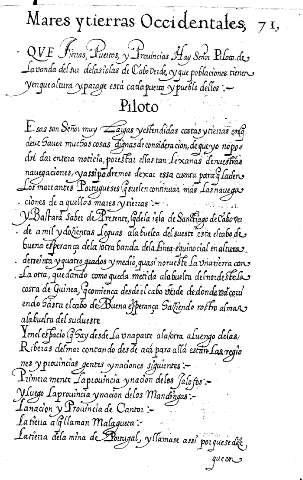 Mares y tierras Occidentales, 71,
QVE Tierras, Puertos, y Provincias Hay Señor Piloto de
La vanda del sur delas islas de Cabo Verde, y que poblaciones tienen
y en que altura y parage está cada puerto y pueblo dellos:
Piloto
Esas son Señor muy Largas y estendidas costas y tierras en q̃
deve haver muchas cosas dignas de consideracion, de que yo no po-
dré dar entera noticia, por estar ellas tan Lexanas de nuestras
navegaciones, y assi podremos dexar esta cuenta para q̃ la den
Los mareantes Portugueses q̃ suelen continuar mas Las navega-
ciones de aquellos mares y tierras
Y Bastara saber de Presente, q̃ desde la isla de Santiago de Cabo Ver
de a mil y dozientas Leguas a la buelta del sueste esta el cabo de
buena esperança dela otra banda dela Linea equinocial en altura
de treinta y quatro grados y medio, quasi norueste La una tierra con
La otra, quedando como queda metida ala buelta del nordeste la
costa de Guinea, q̃ comiença desde el cabo Verde de donde va cor
endo hasta el cabo de Buena esperança haziendo rostro al mar
ala buelta del sudueste
Y en el espacio q̃ hay desde La una parte ala otra a Luengo delas
Riberas del mar contando desde acá para allá estan Las regio
nes y provincias gentes y naciones siguientes
Primeramente La provincia y nacion de los Jalofes
Y luego La provincia y nacion delos Mandingas
La nacion y Provincia de Cantor
La tierra a q̃ llaman Malagueta
La tierra dela mina de Portugal, y llamase assi por que se dize
que con